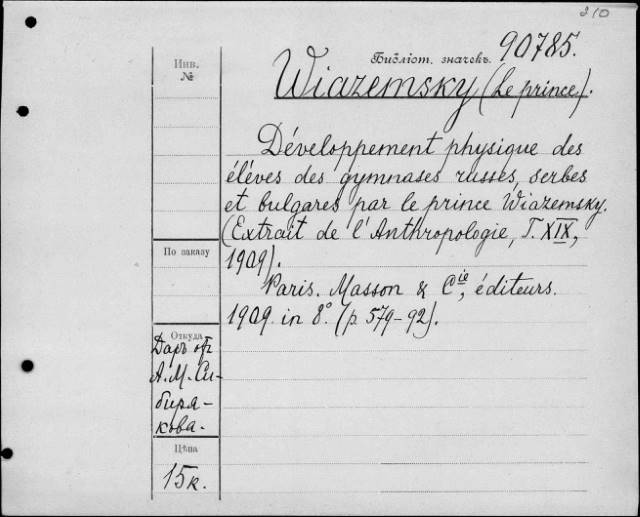 210
Библіот. значекъ. 90785.
Инв.
№
Wiazemsky (Le prince).
Développement physique des
élèves des gymnases russes, serbes
et bulgares par le prince Wiazemsky.
(Extrait de l'Anthropologie, T. XIX,
1909).
По заказу
Paris. Masson & Cie, éditeurs.
1909. in 8°. (p. 579-92).
Откуда
Даръ отъ
А. М. Си-
биря-
кова.
Цѣна
15 к.